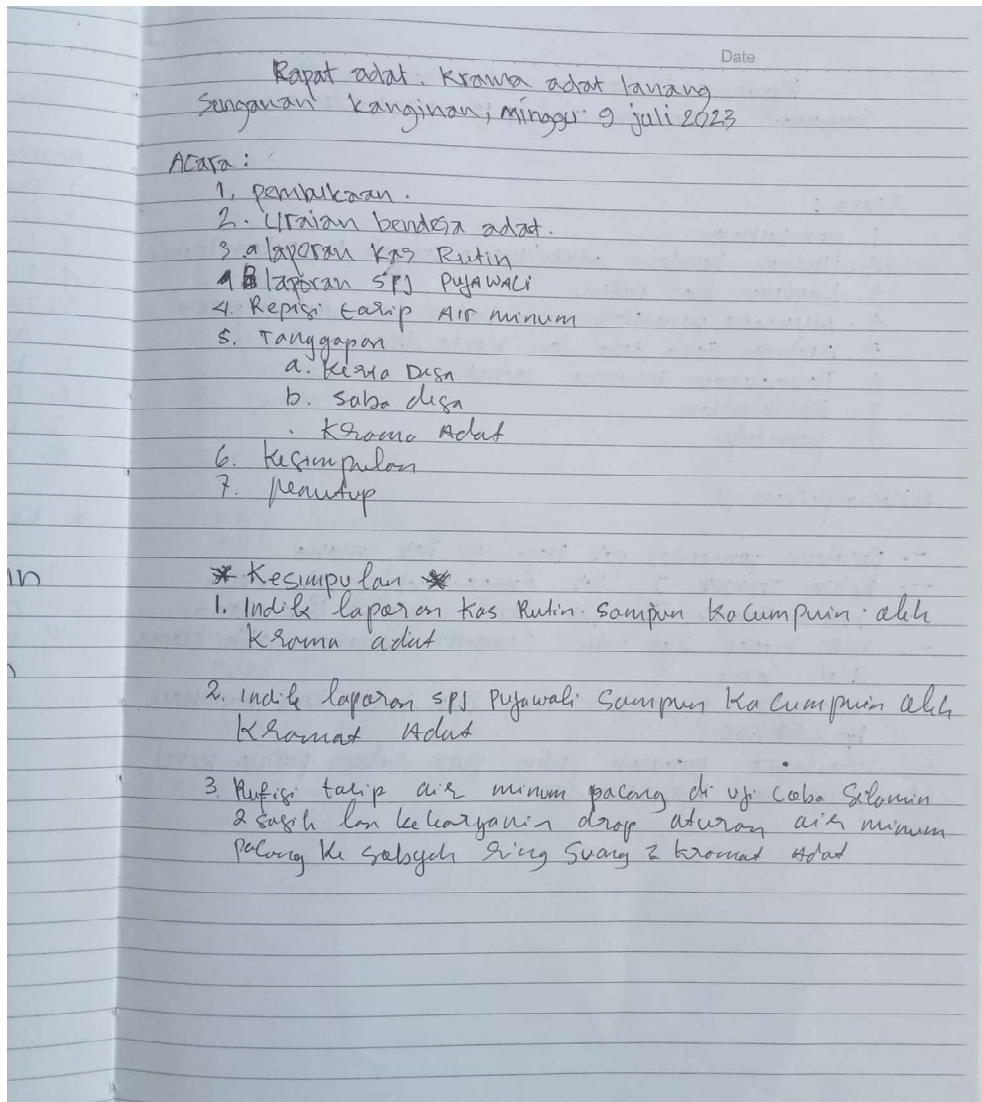 Date
Rapat adat. Krama adat lanang
Senganan Kanginan, minggu 9 juli 2023
Acara :
1. pembukaan.
2. Uraian bendesa adat.
3. a laporan kas Rutin
B laporan SPJ PUJAWALI
4. Repisi tarip Air minum
5. Tanggapan
a. Kerta Desa
b. saba desa
. Krama Adat
6. Kesimpulan
7. penutup
in
* Kesimpulan *
1. Indik laporan Kas Rutin. Sampun Kacumpuin. olih
Krama adat
2. Indik laporan SPJ Pujawali Sampun Ka cumpuin olih
Kramat Adat
3. Rufisi tarip air minum pacang di uji coba Selamin
2 sasih lan kekaryanin drop aturan air minum
pacang ke sobyah Ring Suang 2 kramat Adat